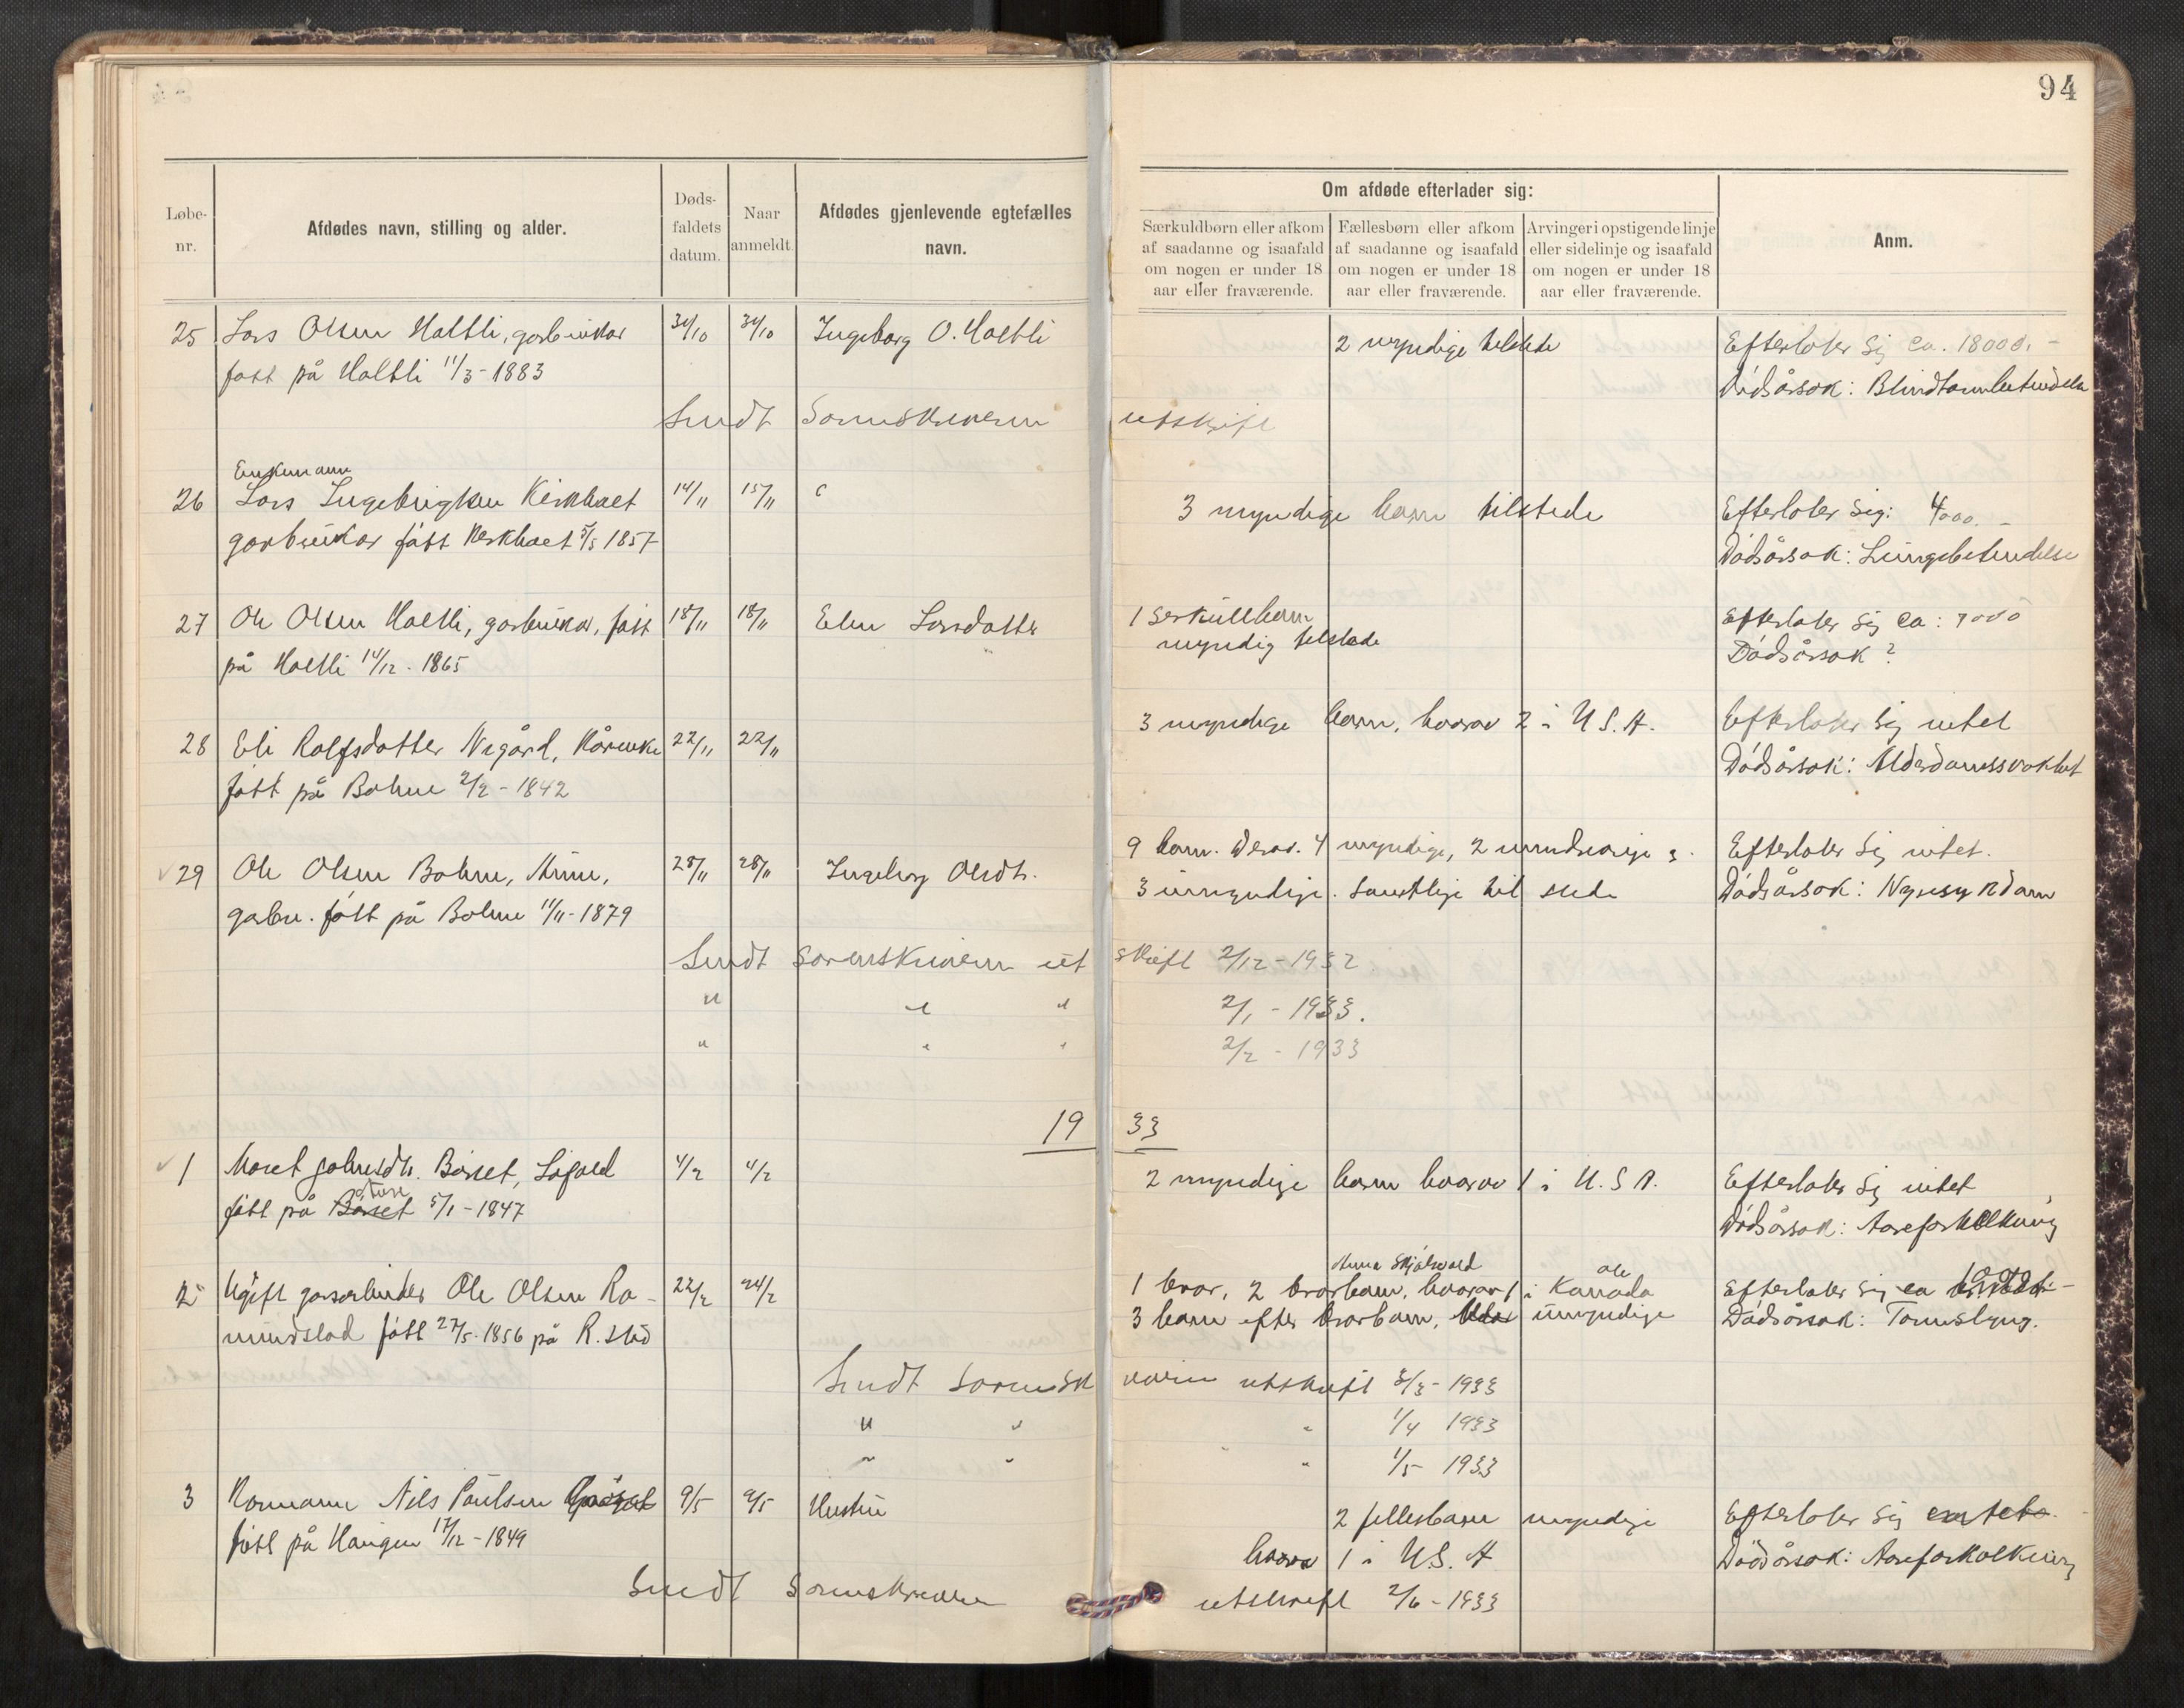 94
Løbe-
nr.
Afdødes navn, stilling og alder.
Døds-
faldets
datum.
Naar
anmeldt.
Afdødes gjenlevende egtefælles
navn.
Om afdøde efterlader sig:
Særkuldbørn eller afkom
af saadanne og isaafald
om nogen er under 18
aar eller fraværende.
Fællesbørn eller afkom
af saadanne og isaafald
om nogen er under 18
aar eller fraværende.
Arvinger i opstigende linje
eller sidelinje og isaafald
om nogen er under 18
aar eller fraværende.
Anm.
25 Lars Olsen Holtli, garbrukar 31/10 31/10 Ingeborg O. Holtli 2 myndige tilstede Efterlater sig ca. 18000.-
født på Holtli 11/3-1883 Dødsårsak: Blindtarmbetendelse
Sendt Sorenskriveren utskrift
Enkemann
26 Lars Ingebrigtsen Kirkholt 14/11 15/11 3 myndige barn tilstede Efterlater sig: 4000.-
garbrukar født Kirkholt 5/5 1857 Dødsårsak: Lungebetendelse
27 Ole Olsen Holtli, garbrukar, født 18/11 18/11 Elen Larsdatter 1 serkullbarn Efterlater sig ca: 7000
på Holtli 14/12-1865 myndig tilstede Dødsårsak?
28 Eli Rolfsdatter Nigård, Kårenke 22/11 22/11 3 myndige barn, hvorav 2 i U.S.A. Efterlater sig intet
født på Bohne 2/2-1842 Dødsårsak: Alderdomssvakhet
29 Ole Olsen Bohne, 28/11 28/11 Ingeborg Olsdtr. 9 barn. Derav. 4 myndige, 2 mindreårige Efterlater sig intet.
garbr. født på Bohne 11/11-1879 3 umyndige. Samtlige til stede Dødsårsak: Nyresykdom
Sendt Sorenskriveren utskrift 2/12-1932
" " " 2/1-1933.
" " " 2/2-1933
1933
1 Maret Johnsdtr. Börset, Legold 4/2 4/2 2 myndige barn hvorav 1 i U.S.A. Efterlater sig intet
født på Börset 5/1-1847 Dødsårsak: Aareforkalkning
Anna Skjølsvold
2 Ugift gårsarbeider Ole Olsen Ra- 22/2 24/2 1 bror, 2 brorbarn, hvorav 1 i Kanada Efterlater sig ca
mundstad født 27/5-1856 på R.stad 3 barn efter brorbarn, umyndige Dødsårsak: Tarmslyng.
Sendt Sorenskriveren utskrift 3/3-1933
" " " 1/4 1933
" " " 1/5 1933
3 Kormann Nils Paulsen 9/5 9/5 Hustru 2 fellesbarn myndige Efterlater sig
født på Haugen 17/12-1849 hvorav 1 i U.S.A Dødsårsak: Aareforkalkning
Sendt Sorenskriveren utskrift 2/6-1933